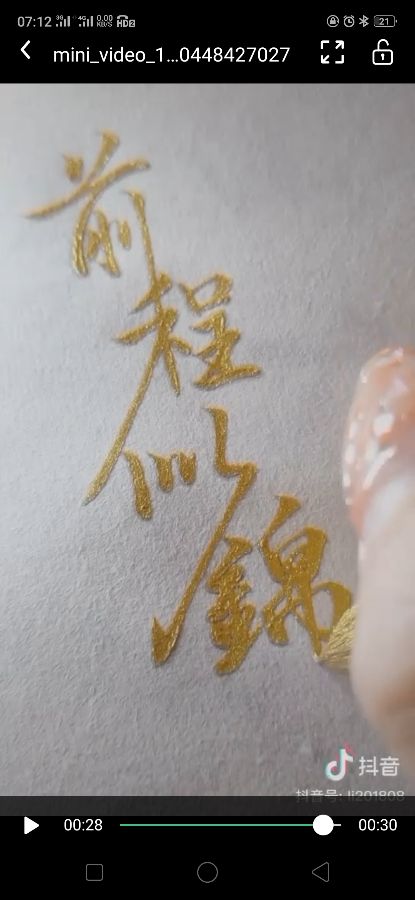 07:12 3G 4G 0.00 KB/S HD2 21
mini_video_1...0448427027
前
程
似
錦
抖音
抖音号: li201808
00:28 00:30